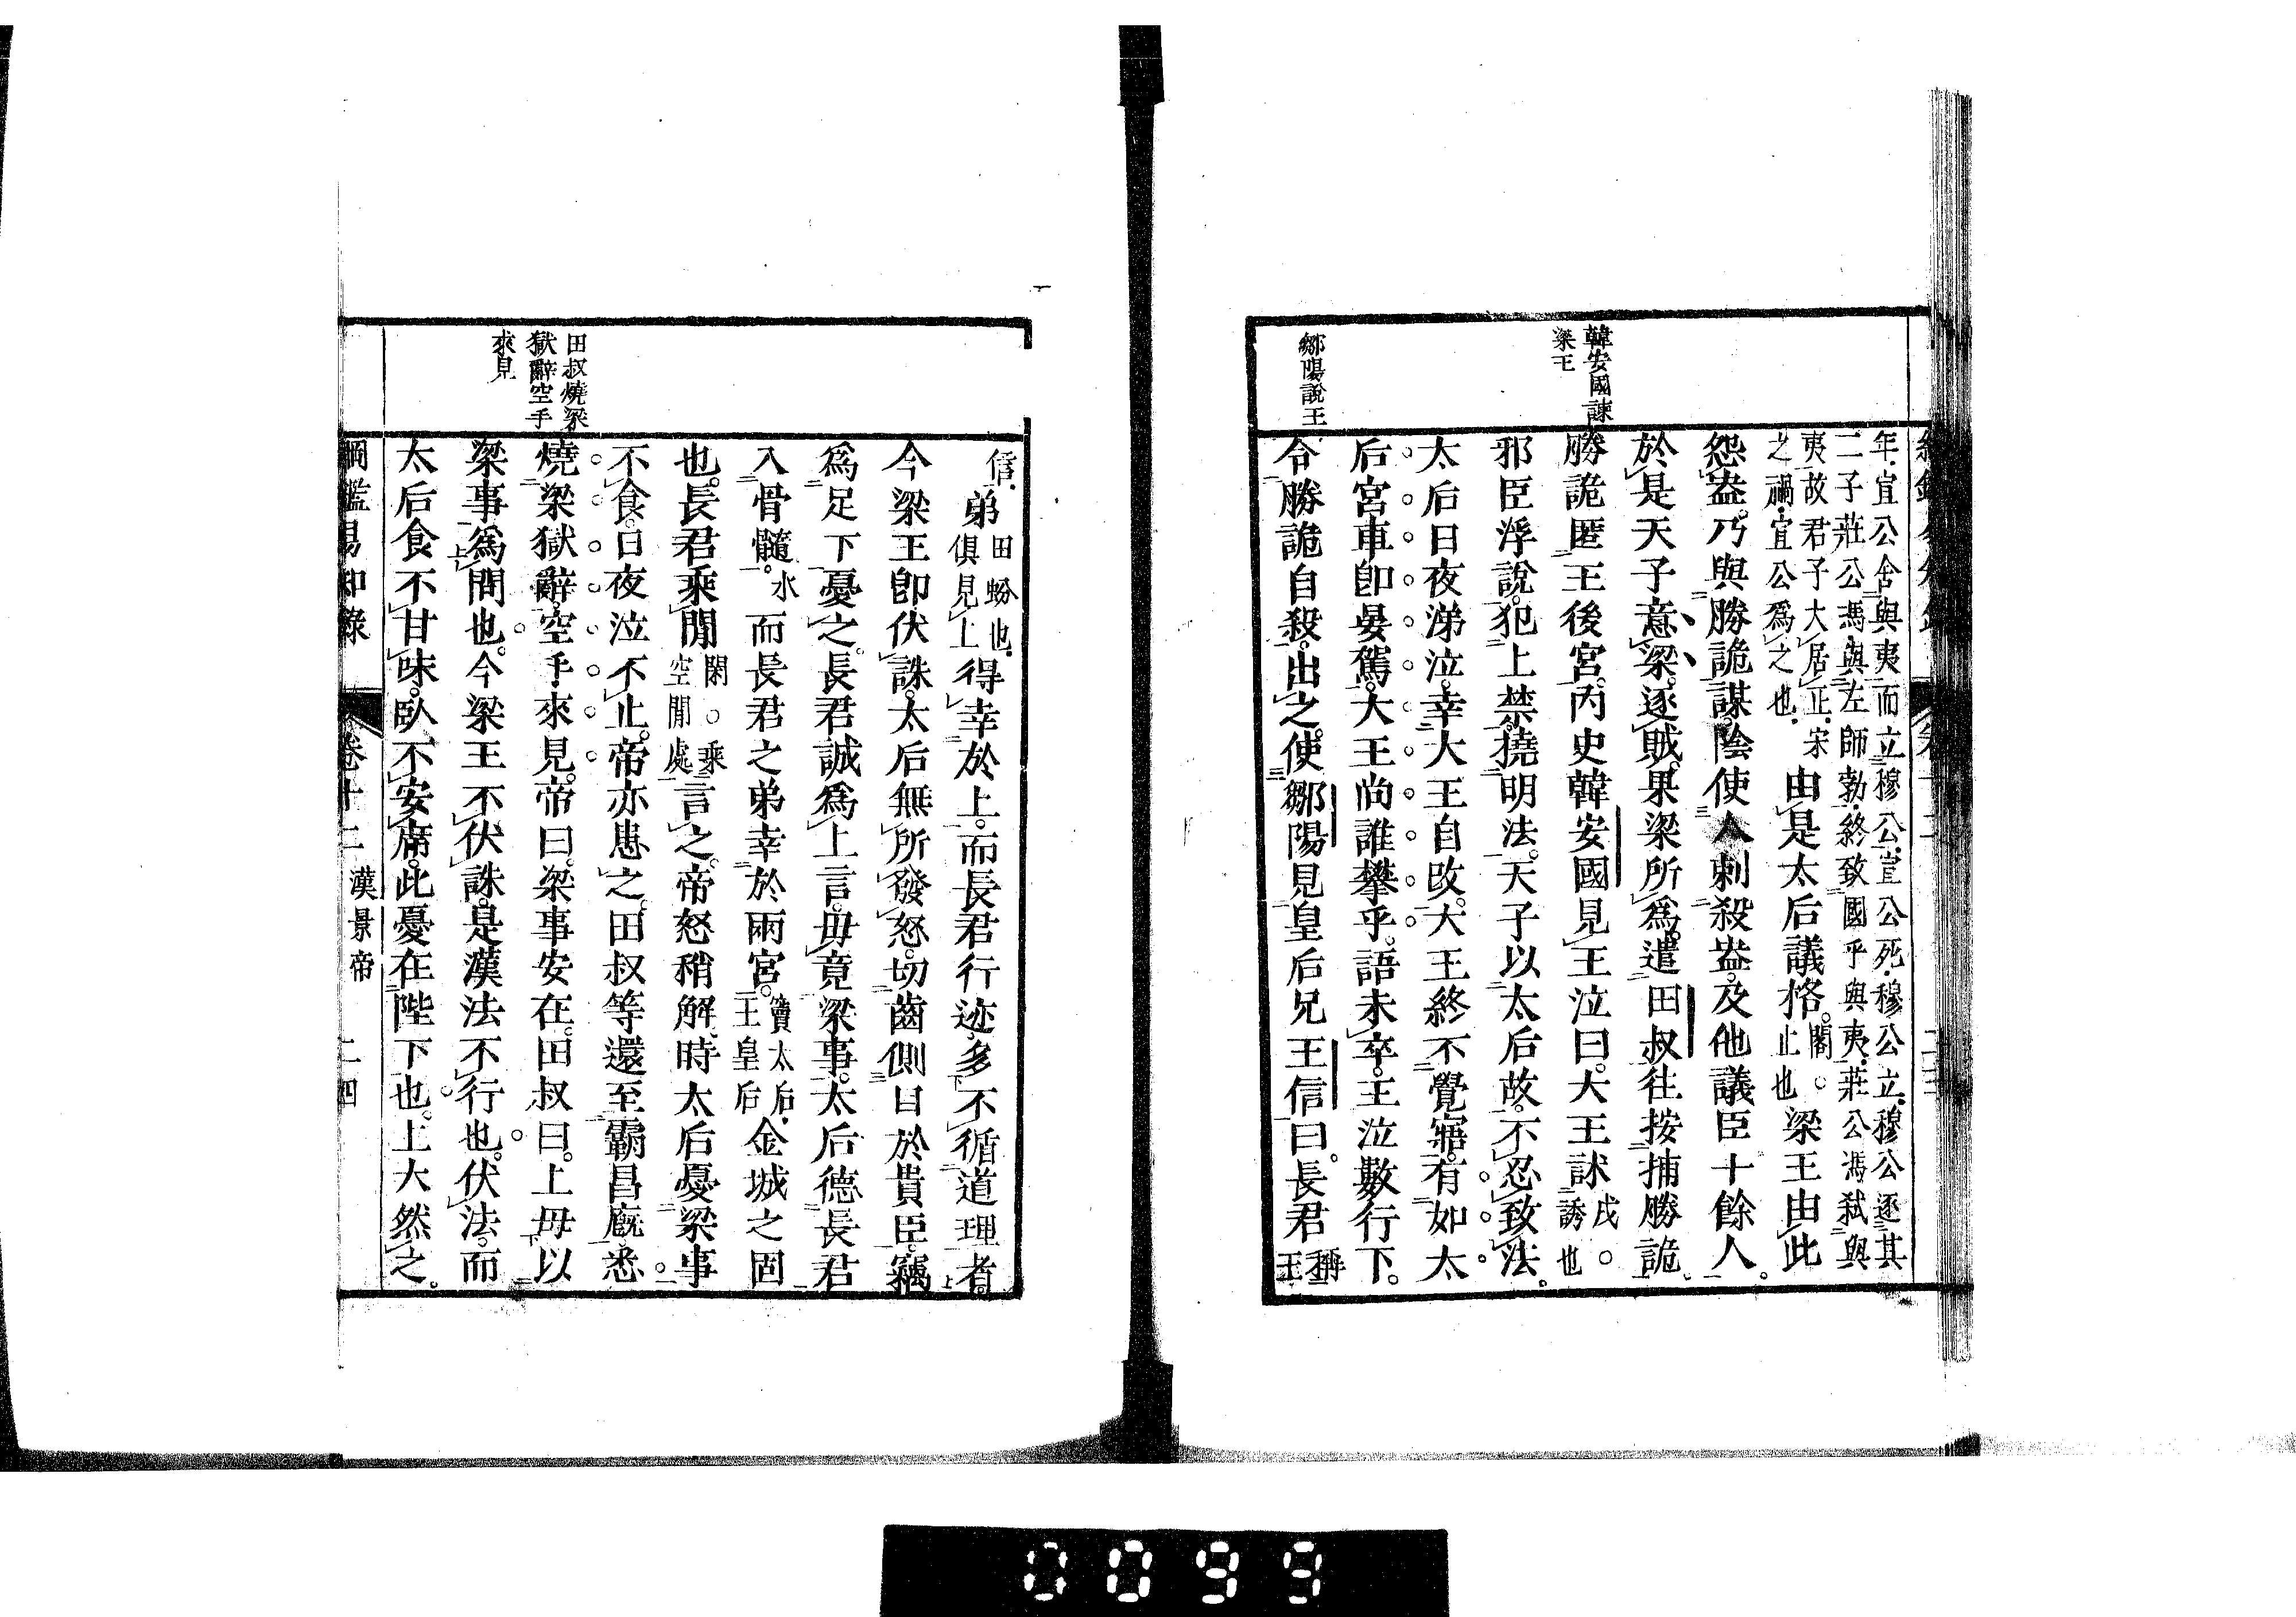 韓安國諫
梁王
鄒陽說王
年宣公舍與夷而立穆公宣公死穆公立穆公逐其
二子莊公馮與左師勃終致國乎與夷莊公馮弑與
夷故君子大居正宋
之禍宣公爲之也
由是太后議格
閣○
止也
梁王由此
怨盎乃與勝詭謀陰使人刺殺盎及他議臣十餘人
於是天子意梁逐賊果梁所爲遣田叔往按捕勝詭
勝詭匿王後宮內史韓安國見王泣曰大王訹
戌○
誘也
邪臣浮說犯上禁撓明法天子以太后故不忍致法
太后日夜涕泣幸大王自改大王終不覺寤有如太
后宮車卽晏駕大王尚誰攀乎語未卒王泣數行下
令勝詭自殺出之使鄒陽見皇后兄王信曰長君
稱
王
田叔燒梁
獄辭空手
來見
信
弟
田蚡也
俱見上
得幸於上而長君行迹多不循道理者
今梁王卽伏誅太后無所發怒切齒側目於貴臣竊
爲足下憂之長君誠爲上言毋竟梁事太后德長君
入骨髓
水
而長君之弟幸於兩宮
竇太后
王皇后
金城之固
也長君乘閒
閑○乘
空閒處
言之帝怒稍解時太后憂梁事
不食日夜泣不止帝亦患之田叔等還至霸昌廐悉
燒梁獄辭空手來見帝曰梁事安在田叔曰上毋以
梁事爲問也今梁王不伏誅是漢法不行也伏法而
太后食不甘味臥不安席此憂在陛下也上大然之
綱鑑易知錄 卷十二 漢景帝 二四
0099